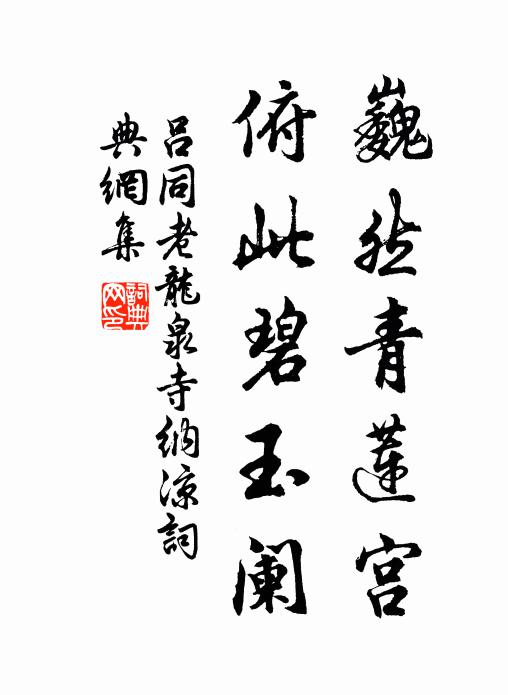 巍然青蓮宮
俯此碧玉阑
吕同老龍泉寺納凉詞
典網集
詞典網印